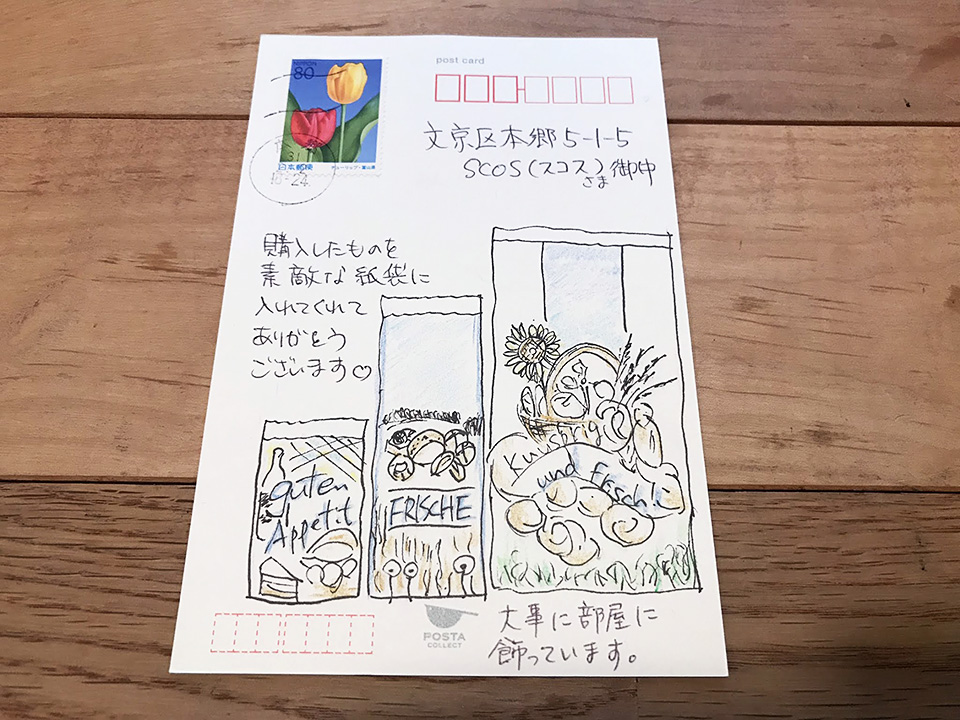 post card
NIPPON
80
日本郵便
チューリップ・富山県
文京区本郷5-1-5
SCOS(スコス)さま御中
購入したものを
素敵な紙袋に
入れてくれて
ありがとう
ございます♡
guten
Appetit
FRISCHE
und frisch!
POSTA
COLLECT
大事に部屋に
飾っています。